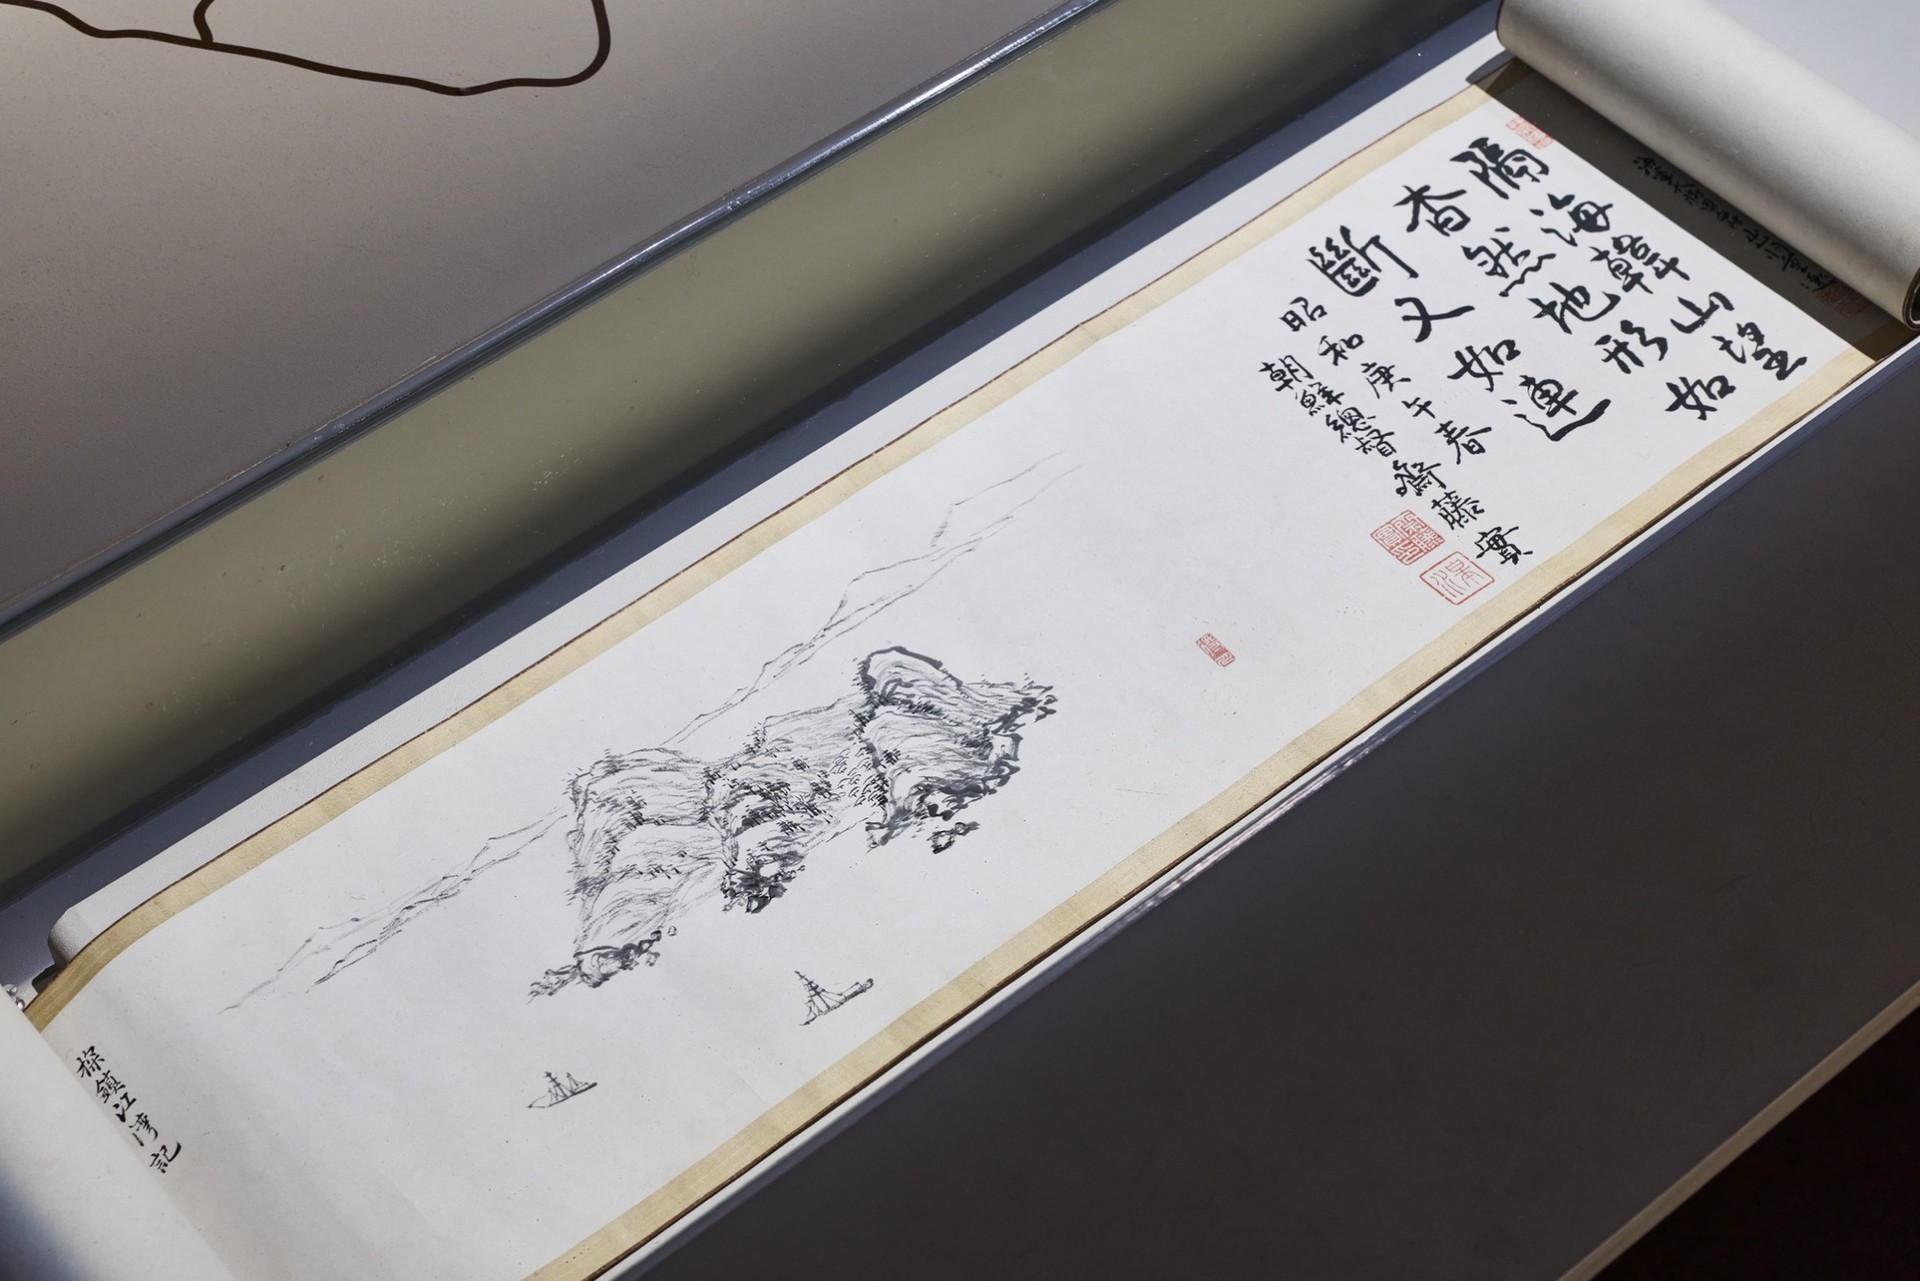 隔海韓山望
杳然地形如
斷又如連
昭和庚午春
朝鮮總督齋藤實
探鎮江湾記